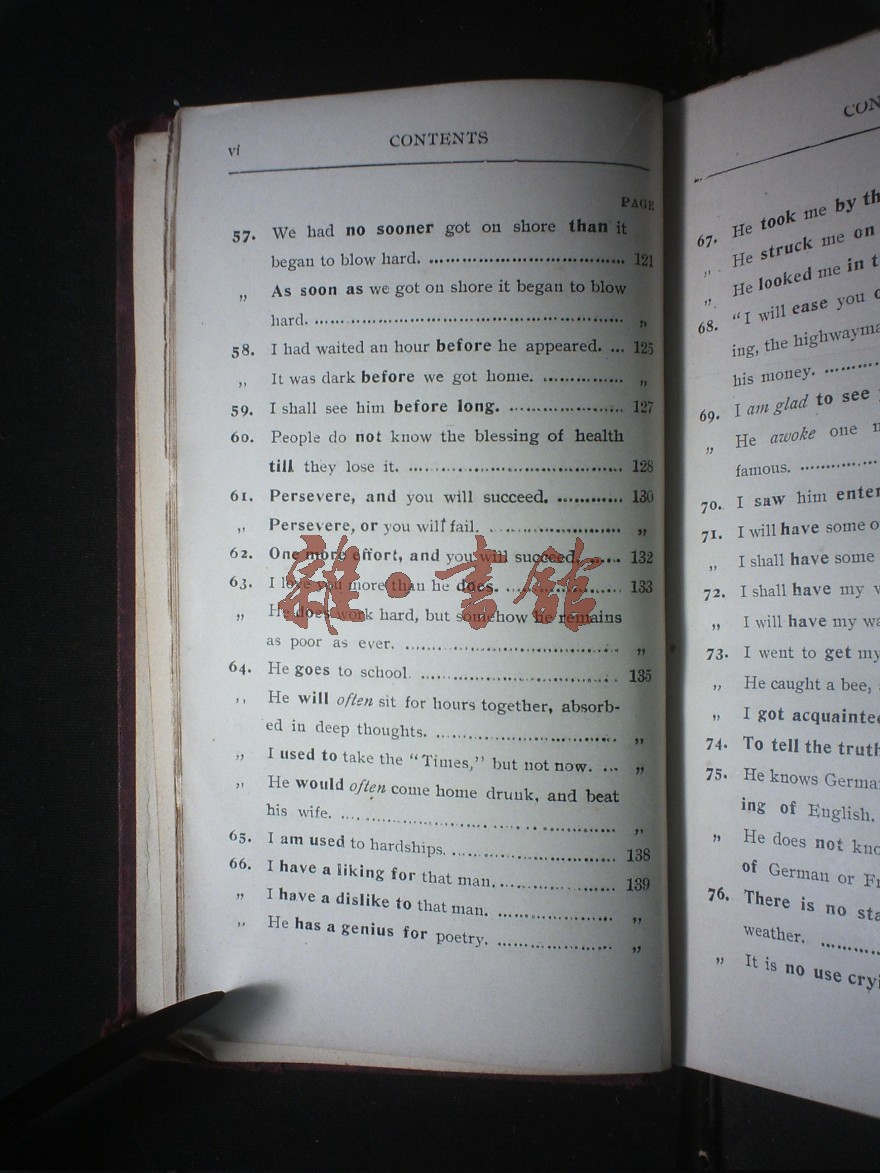 vi CONTENTS
PAGE
57. We had no sooner got on shore than it
began to blow hard. ........................ 121
„ As soon as we got on shore it began to blow
hard. ........................ „
58. I had waited an hour before he appeared. ... 125
„ It was dark before we got home. ............... „
59. I shall see him before long. ..................... 127
60. People do not know the blessing of health
till they lose it. ........................ 128
61. Persevere, and you will succeed. ............ 130
„ Persevere, or you will fail. ..................... „
62. One more effort, and you will succeed. ...... 132
63. I love you more than he does. .................. 133
„ He does work hard, but somehow he remains
as poor as ever. ........................ „
64. He goes to school. ........................ 135
„ He will often sit for hours together, absorb-
ed in deep thoughts. ........................ „
„ I used to take the “Times,” but not now. ... „
„ He would often come home drunk, and beat
his wife. ........................ „
65. I am used to hardships. ..................... 138
66. I have a liking for that man. .................. 139
„ I have a dislike to that man. .................. „
„ He has a genius for poetry. .................. „
雜·書館
CON
67. He took me by th
„ He struck me on
„ He looked me in t
68. “I will ease you
ing, the highwayma
his money. .........
69. I am glad to see
„ He awoke one
famous. ............
70. I saw him enter
71. I will have some o
„ I shall have some
72. I shall have my
„ I will have my wa
73. I went to get my
„ He caught a bee,
„ I got acquainte
74. To tell the truth
75. He knows Germa
ing of English.
„ He does not kno
of German or Fr
76. There is no sta
weather. .........
„ It is no use cryi